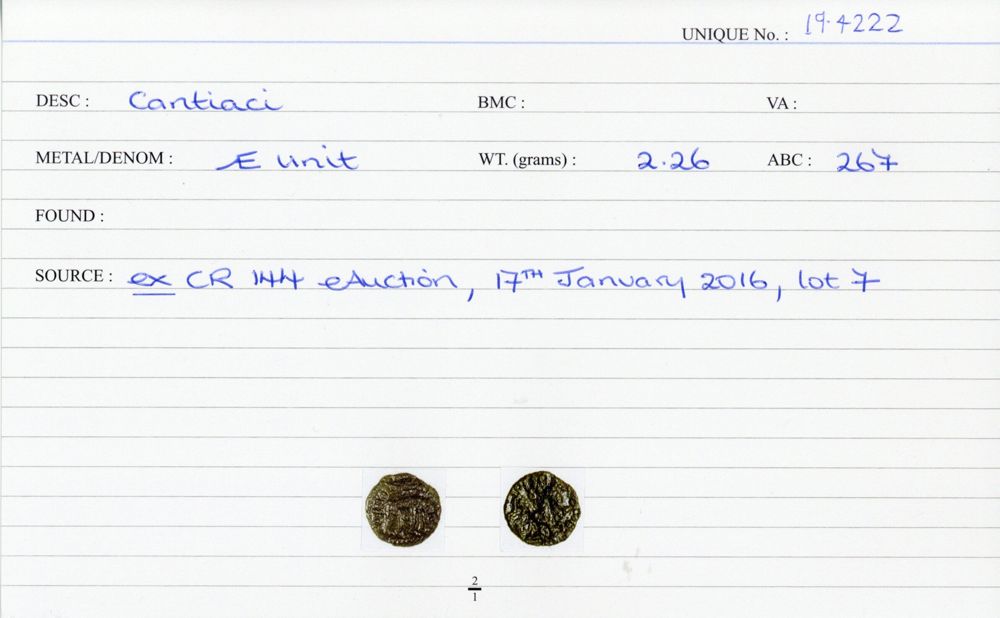 UNIQUE No. : 19.4222
DESC : Cantiaci BMC : VA :
METAL/DENOM : Æ unit WT. (grams) : 2.26 ABC : 267
FOUND :
SOURCE : ex CR 144 eAuction, 17TH January 2016, lot 7
2
1